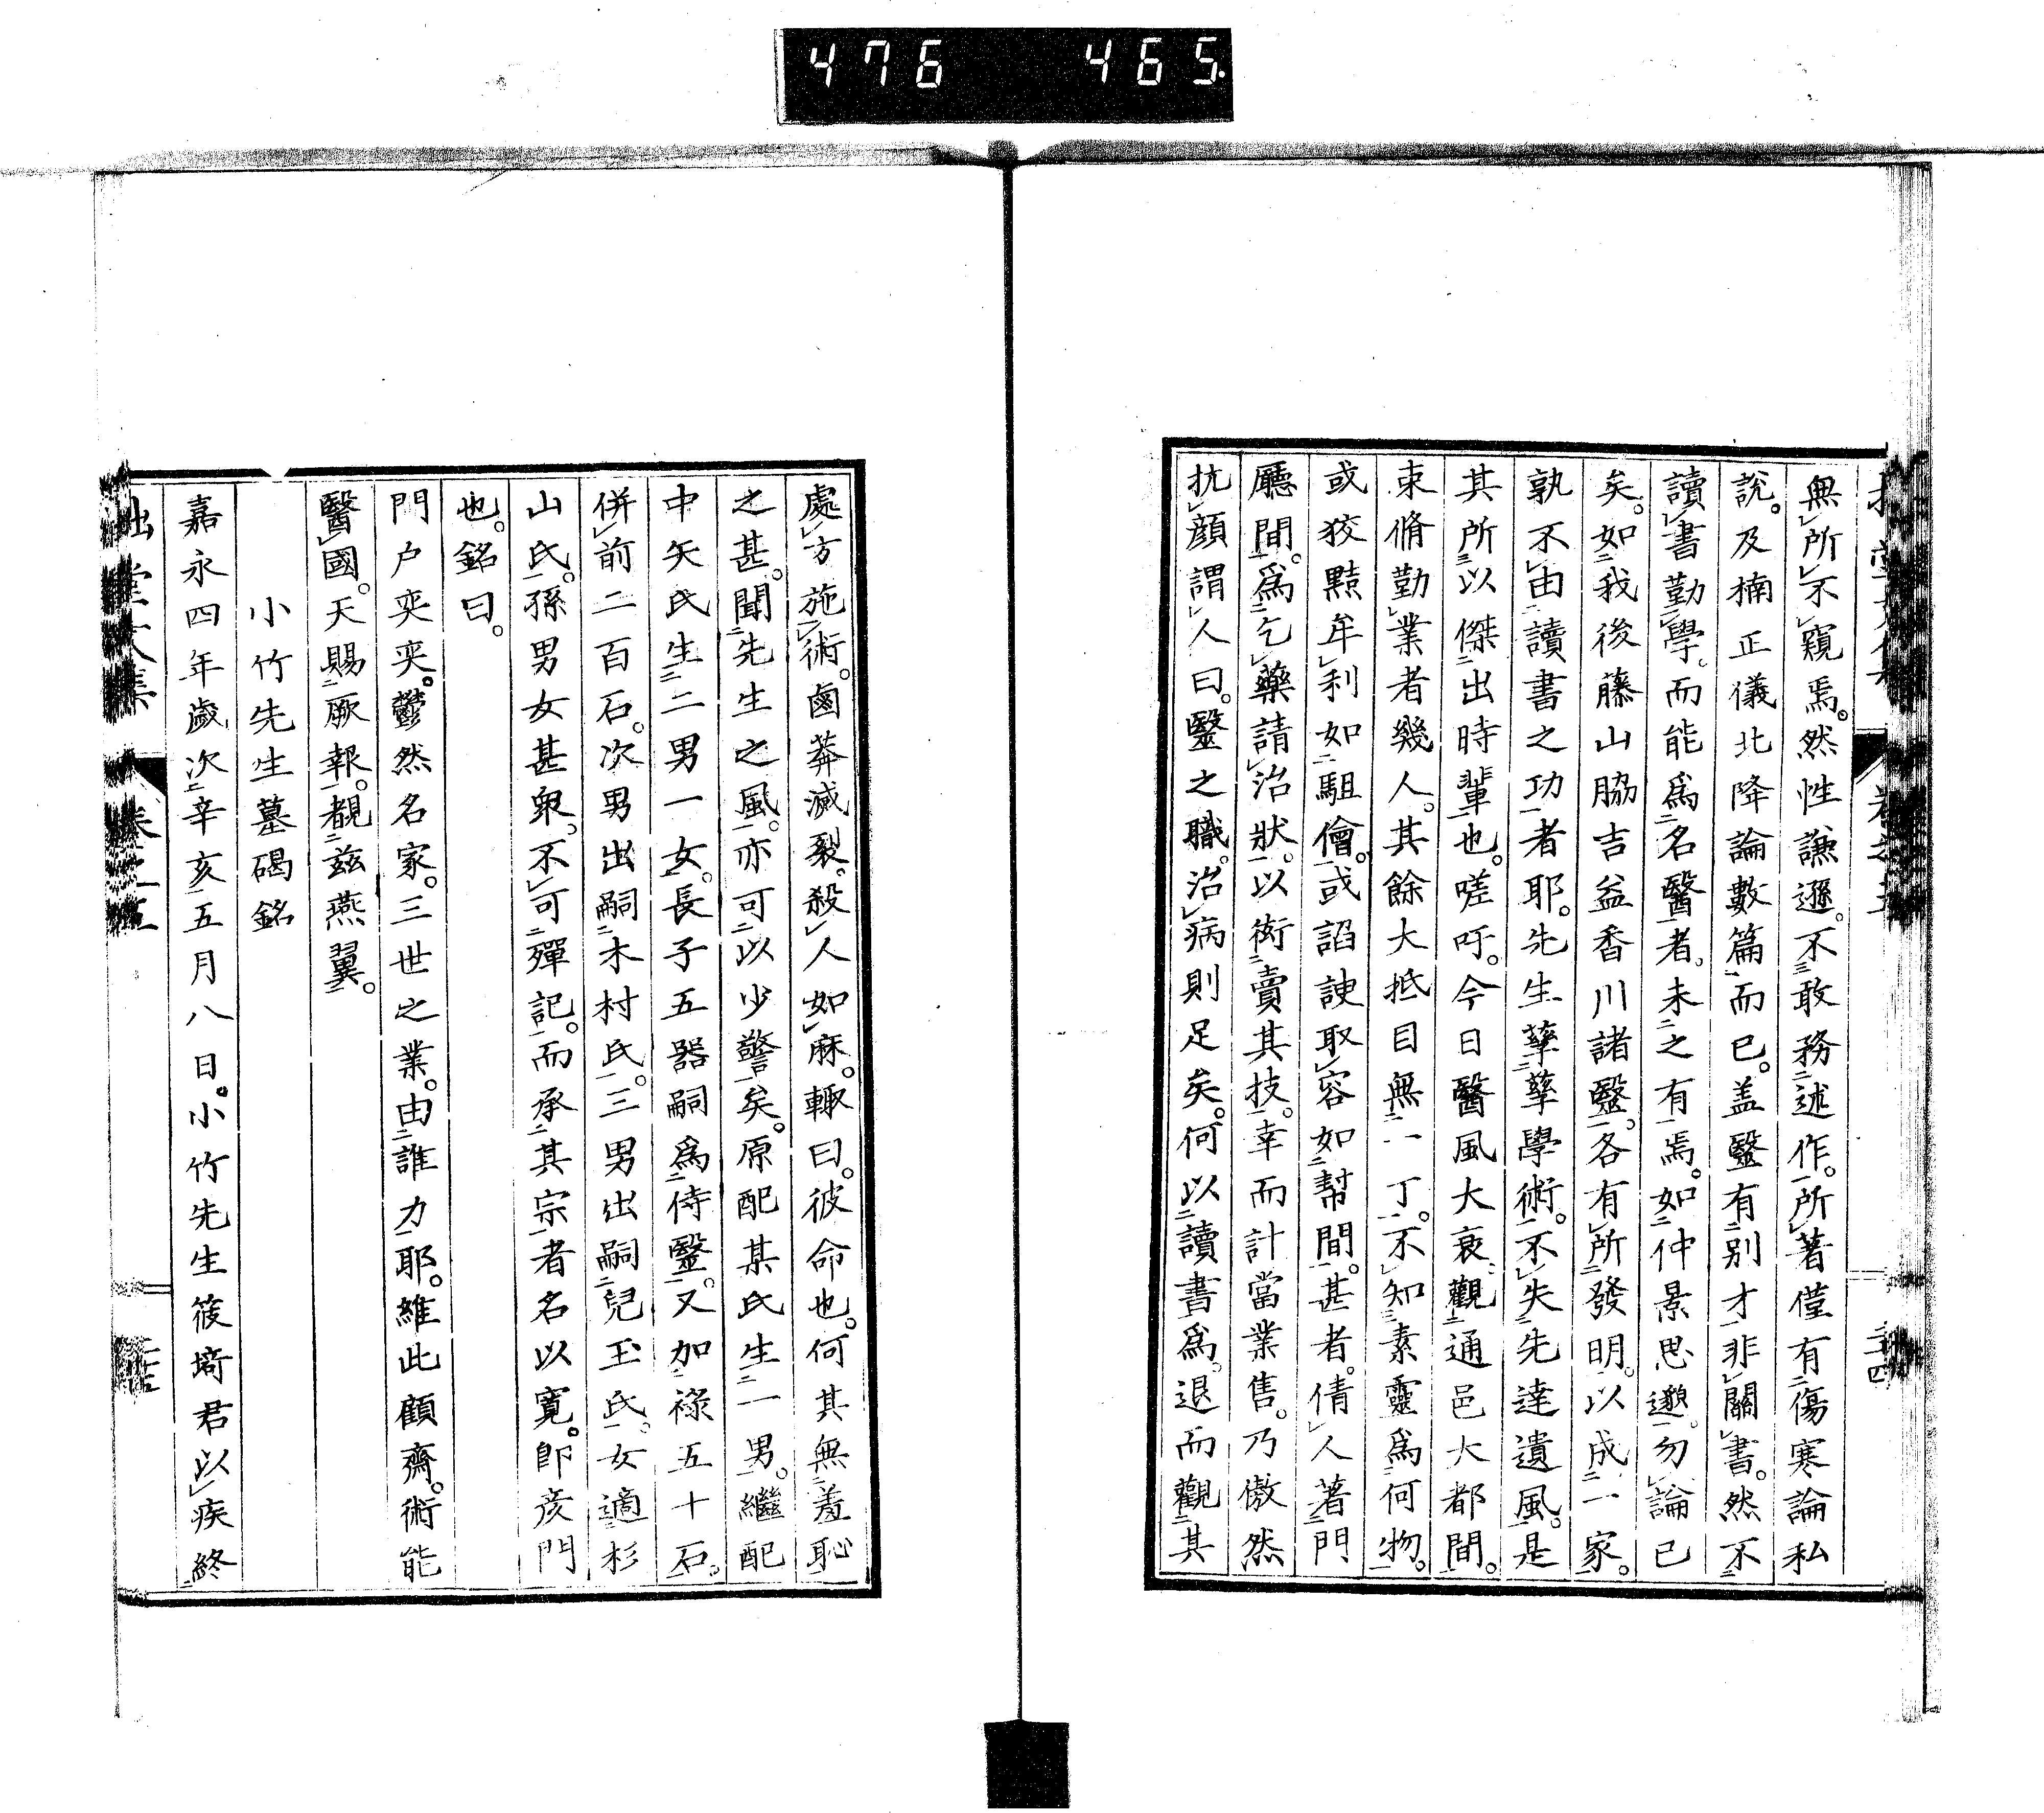 476 465
無所不窺焉。然性謙遜。不敢務述作。所著僅有傷寒論私
說。及楠正儀北降論數篇而已。盖毉有別才。非關書。然不
讀書勤學。而能爲名醫者。未之有焉。如仲景思邈。勿論已
矣。如我後藤山脇吉益香川諸毉。各有所發明。以成一家。
孰不由讀書之功者耶。先生孳孳學術。不失先達遺風。是
其所以傑出時輩也。嗟吁。今日醫風大衰。觀通邑大都間。
束脩勤業者幾人。其餘大抵目無一丁。不知素靈爲何物。
或狡黠牟利如駔儈。或諂諛取容如幇間。甚者。倩人著門
廳間。爲乞藥請治狀。以衒賣其技。幸而計當業售。乃傲然
抗顏謂人曰。毉之職。治病則足矣。何以讀書爲。退而觀其
處方施術。鹵莽滅裂。殺人如麻。輙曰。彼命也。何其無羞恥
之甚。聞先生之風。亦可以少警矣。原配某氏生一男。繼配
中矢氏生二男一女。長子五器嗣爲侍毉。又加祿五十石。
併前二百石。次男出嗣木村氏。三男出嗣兒玉氏。女適杉
山氏。孫男女甚衆。不可殫記。而承其宗者名以寬。卽彦門
也。銘曰。
門户奕奕。鬱然名家。三世之業。由誰力耶。維此顧齋。術能
醫國。天賜厥報。覩茲燕翼。
小竹先生墓碣銘
嘉永四年歲次辛亥五月八日。小竹先生筱埼君以疾終
拙堂文集 卷之五